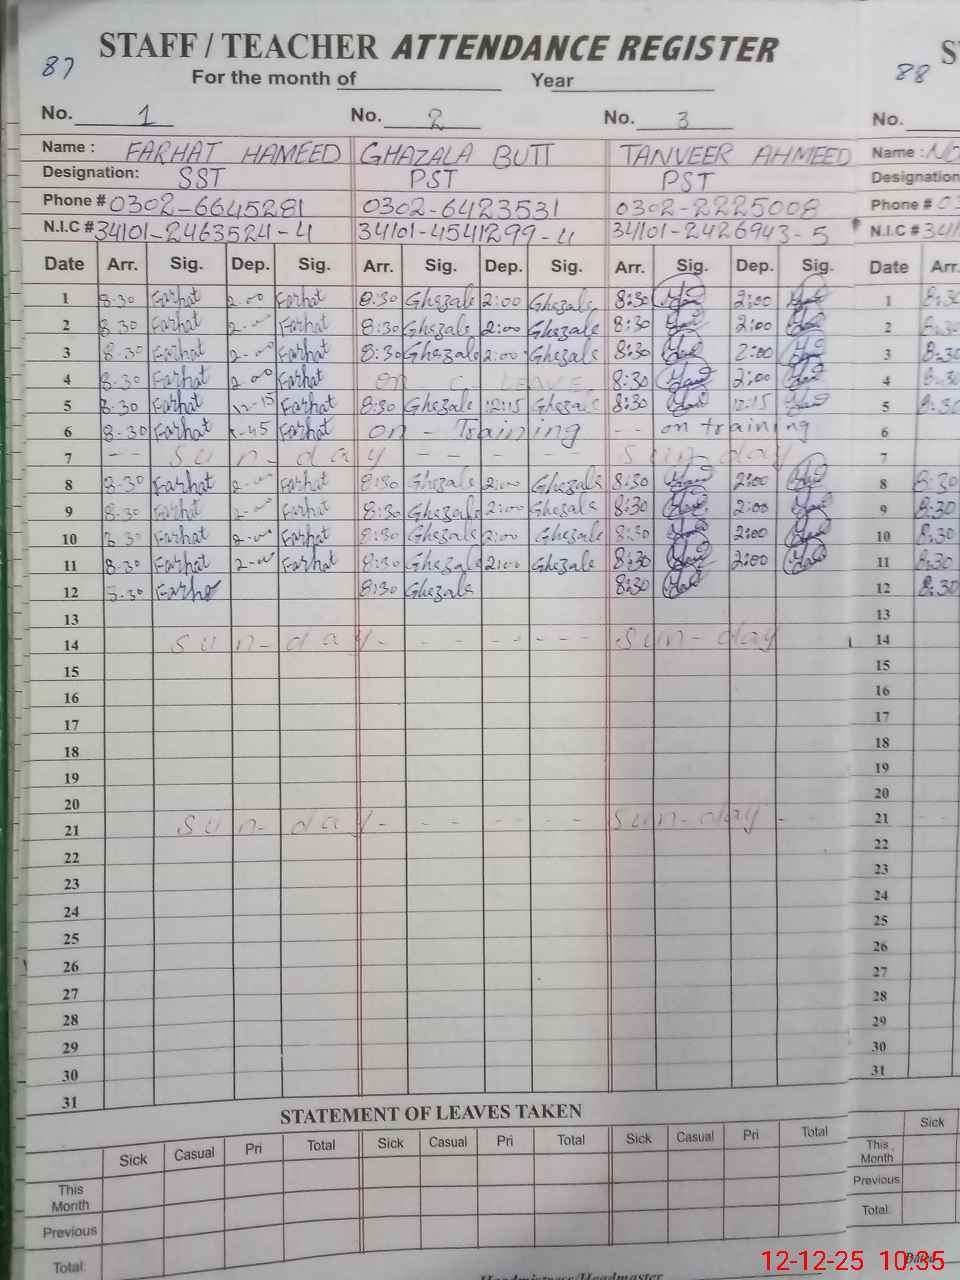 87
STAFF / TEACHER ATTENDANCE REGISTER
For the month of Year
No. 1 No. 2 No. 3
Name : FARHAT HAMEED GHAZALA BUTT TANVEER AHMEED
Designation: SST PST PST
Phone # 0302-6645281 0302-6423531 0302-2225008
N.I.C # 34101-2463524-4 34101-4541299-4 34101-2426943-5
Date Arr. Sig. Dep. Sig. Arr. Sig. Dep. Sig. Arr. Sig. Dep. Sig.
1 8-30 Farhat 2-00 Farhat 8:30 Ghazala 2:00 Ghazala 8:30 2:00
2 8-30 Farhat 2-00 Farhat 8:30 Ghazala 2:00 Ghazala 8:30 2:00
3 8-30 Farhat 2-00 Farhat 8:30 Ghazala 2:00 Ghazala 8:30 2:00
4 8-30 Farhat 2-00 Farhat on C- LEAVE 8:30 2:00
5 8-30 Farhat 12-15 Farhat 8:30 Ghazala 12:15 Ghazala 8:30 12:15
6 8-30 Farhat Farhat on - Training -- on training
7 -- sun-day - - - - - sun-day
8 8-30 Farhat 2-00 Farhat 8:30 Ghazala 2:00 Ghazala 8:30 2:00
9 8-30 Farhat 2-00 Farhat 8:30 Ghazala 2:00 Ghazala 8:30 2:00
10 8-30 Farhat 2-00 Farhat 8:30 Ghazala 2:00 Ghazala 8:30 2:00
11 8-30 Farhat 2-00 Farhat 8:30 Ghazala 2:00 Ghazala 8:30 2:00
12 8-30 Farhat 8:30 Ghazala 8:30
13
14 sun-day - - - - - - - sun-day
15
16
17
18
19
20
21 sun-day - - - - - - - sun-day - -
22
23
24
25
26
27
28
29
30
31
STATEMENT OF LEAVES TAKEN
Sick Casual Pri Total Sick Casual Pri Total Sick Casual Pri Total
This Month
Previous
Total:
Headmistress/Headmaster
88
No.
Name :
Designation
Phone #
N.I.C #
Date Arr.
1 8:30
2 8:30
3 8:30
4 8:30
5 8:30
6
7
8 8:30
9 8:30
10 8:30
11 8:30
12 8:30
13
14
15
16
17
18
19
20
21 - -
22
23
24
25
26
27
28
29
30
31
Sick
This Month
Previous
Total:
12-12-25 10:35